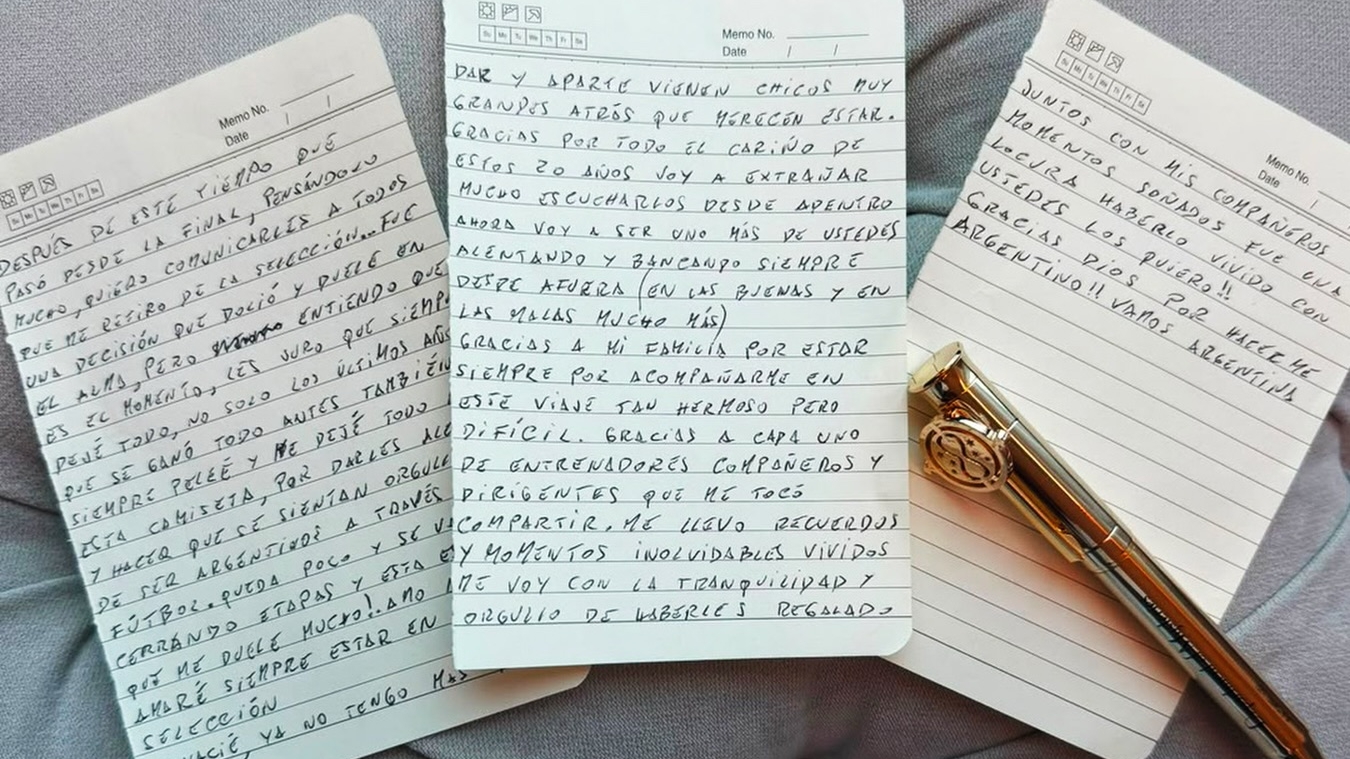 Memo No.
Date / /
DESPUÉS DE ESTE TIEMPO QUE
PASÓ DESDE LA FINAL, PENSÁNDOLO
MUCHO, QUIERO COMUNICARLES A TODOS
QUE ME RETIRO DE LA SELECCIÓN... FUE
UNA DECISIÓN QUE DOLIÓ Y DUELE EN
EL ALMA, PERO ENTIENDO QUE
ES EL MOMENTO, LES JURO QUE SIEMP
DEJÉ TODO, NO SOLO LOS ÚLTIMOS AÑOS
QUE SE GANÓ TODO ANTES TAMBIÉN
SIEMPRE PELEÉ Y DEJÉ TODO
ESTA CAMISETA, POR DARLES ALE
Y HACER QUE SE SIENTAN ORGULL
DE SER ARGENTINOS A TRAVÉS
FÚTBOL. QUEDA POCO Y SE V
CERRANDO ETAPAS Y ESTA E
QUE ME DUELE MUCHO! AMO L
AMARÉ SIEMPRE ESTAR EN
SELECCIÓN
VACIÉ, YA NO TENGO MAS
Memo No.
Date / /
Su Mo Tu We Th Fr Sa
DAR Y APARTE VIENEN CHICOS MUY
GRANDES ATRÁS QUE MERECEN ESTAR.
GRACIAS POR TODO EL CARIÑO DE
ESTOS 20 AÑOS VOY A EXTRAÑAR
MUCHO ESCUCHARLOS DESDE ADENTRO
AHORA VOY A SER UNO MÁS DE USTEDES
ALENTANDO Y BANCANDO SIEMPRE
DESDE AFUERA (EN LAS BUENAS Y EN
LAS MALAS MUCHO MÁS)
GRACIAS A MI FAMILIA POR ESTAR
SIEMPRE POR ACOMPAÑARME EN
ESTE VIAJE TAN HERMOSO PERO
DIFÍCIL. GRACIAS A CADA UNO
DE ENTRENADORES COMPAÑEROS Y
DIRIGENTES QUE ME TOCÓ
COMPARTIR. ME LLEVO RECUERDOS
Y MOMENTOS INOLVIDABLES VIVIDOS
ME VOY CON LA TRANQUILIDAD Y
ORGULLO DE HABERLES REGALADO
Memo No.
Date /
Su Mo Tu We Th Fr Sa
JUNTOS CON MIS COMPAÑEROS
MOMENTOS SOÑADOS FUE UNA
LOCURA HABERLO VIVIDO CON
USTEDES LOS QUIERO!!
GRACIAS DIOS POR HACERME
ARGENTINO!! VAMOS ARGENTINA